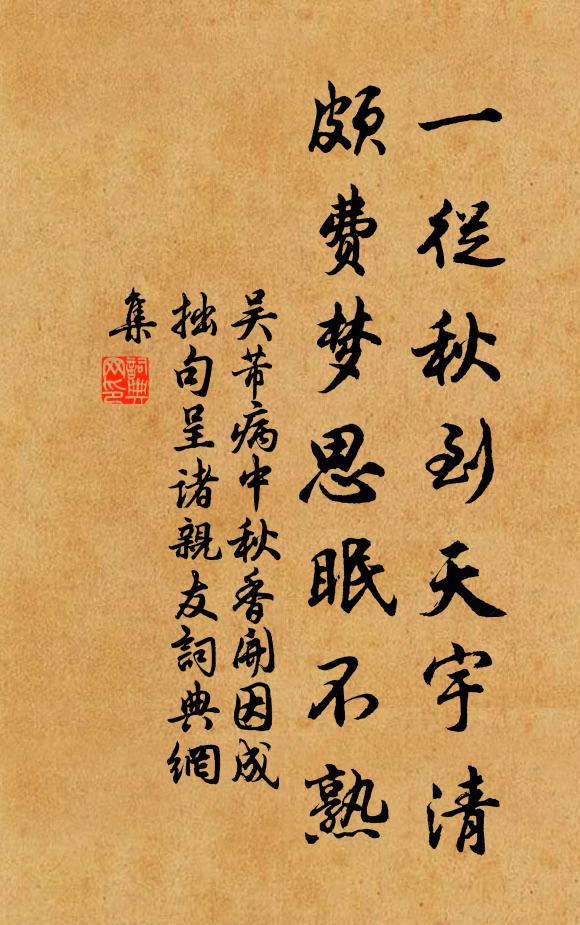 一從秋到天宇清
頗費梦思眠不熟
吴芾病中秋香開因成
拙句呈诸親友詞典網
集
詞典
网印